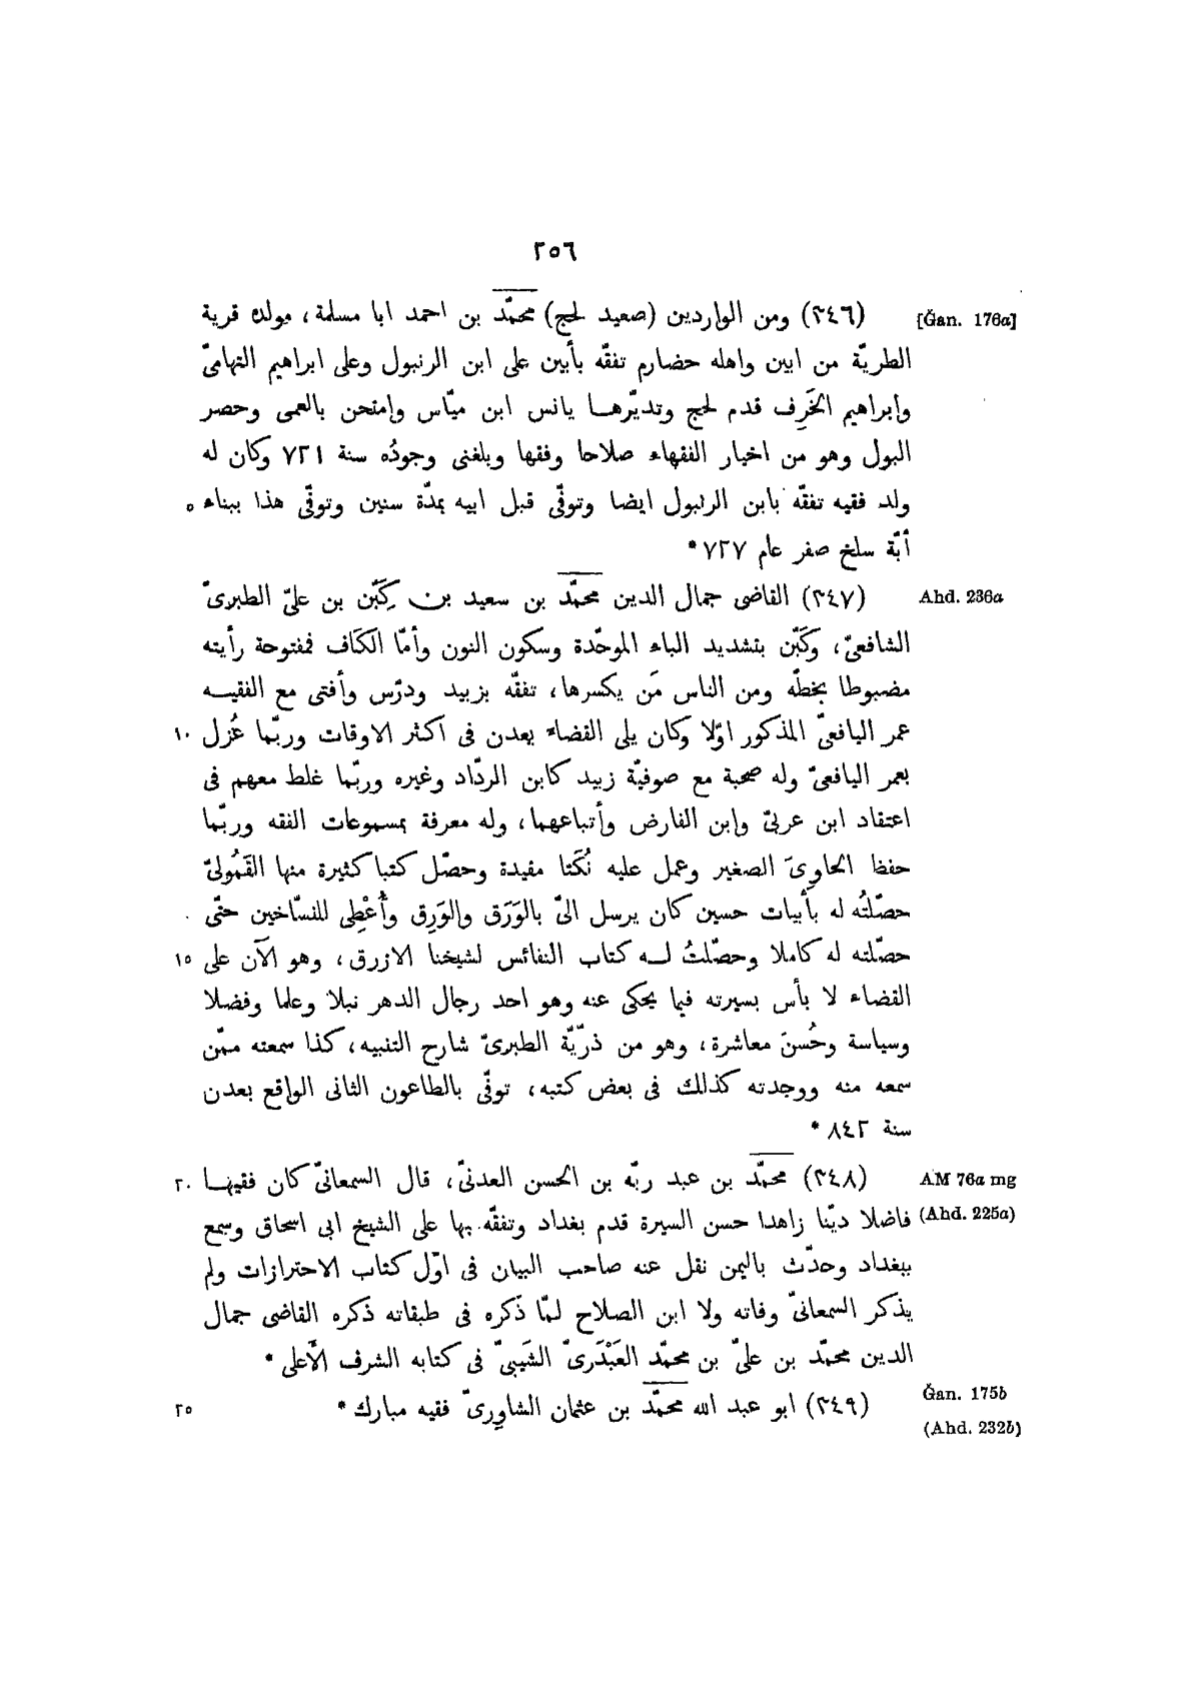 ٢٥٦
[Ǧan. 176a] (٣٤٦) ومن الواردين (صعيد لحج) محمّد بن احمد ابا مسلمة، مولده قرية
الطريّة من ابين واهله حضارم تفقّه بأبين على ابن الرنبول وعلى ابراهيم التهامىّ
وابراهيم الخَرِف قدم لحج وتديّرهـا يانس ابن ميّاس وامتحن بالعمى وحصر
البول وهو من اخيار الفقهاء صلاحا وفقها وبلغنى وجودُه سنة ٧٢١ وكان له
ولد فقيه تفقّه بابن الرنبول ايضا وتوفّى قبل ابيه بمدّة سنين وتوفّى هذا ببناء ٥
أبّة سلخ صفر عام ٧٢٧*
Ahd. 236a (٣٤٧) القاضى جمال الدين محمّد بن سعيد بن كَبّن بن علىّ الطبرىّ
الشافعىّ، وكَبّن بتشديد الباء الموحّدة وسكون النون وأمّا الكاف فمفتوحة رأيته
مضبوطا بخطّه ومن الناس مَن يكسرها، تفقّه بزبيد ودرّس وأفتى مع الفقيـه
عمر اليافعىّ المذكور اوّلا وكان يلى القضاء بعدن فى اكثر الاوقات وربّما عُزل ١٠
بعمر اليافعىّ وله صحبة مع صوفيّة زبيد كابن الردّاد وغيره وربّما غلط معهم فى
اعتقاد ابن عربىّ وابن الفارض وأتباعهما، وله معرفة بمسموعات الفقه وربّما
حفظ الحاوِىَ الصغير وعمل عليه نُكَتا مفيدة وحصّل كتبا كثيرة منها القَمُولىّ
حصّلتُه له بأبيات حسين كان يرسل الىّ بالوَرَق والوَرِق وأُعْطِى للنسّاخين حتّى
حصّلته له كاملا وحصّلتُ لـه كتاب النفائس لشيخنا الازرق، وهو الآن على ١٥
القضاء لا بأس بسيرته فيما يحكى عنه وهو احد رجال الدهر نبلا وعلما وفضلا
وسياسة وحُسنَ معاشرة، وهو من ذرّيّة الطبرىّ شارح التنبيه، كذا سمعته ممّن
سمعه منه ووجدته كذلك فى بعض كتبه، توفّى بالطاعون الثانى الواقع بعدن
سنة ٨٤٢*
AM 76a mg (٣٤٨) محمّد بن عبد ربّه بن الحسن العدنىّ، قال السمعانىّ كان فقيهـا ٢٠
(Ahd. 225a) فاضلا ديّنا زاهدا حسن السيرة قدم بغداد وتفقّه بها على الشيخ ابى اسحاق وسمع
ببغداد وحدّث باليمن نقل عنه صاحب البيان فى اوّل كتاب الاحترازات ولم
يذكر السمعانىّ وفاته ولا ابن الصلاح لمّا ذكره فى طبقاته ذكره القاضى جمال
الدين محمّد بن علىّ بن محمّد العَبْدَرىّ الشَيبىّ فى كتابه الشرف الأعلى*
Ǧan. 175b (٣٤٩) ابو عبد الله محمّد بن عثمان الشاوِرىّ فقيه مبارك* ٢٥
(Ahd. 232b)